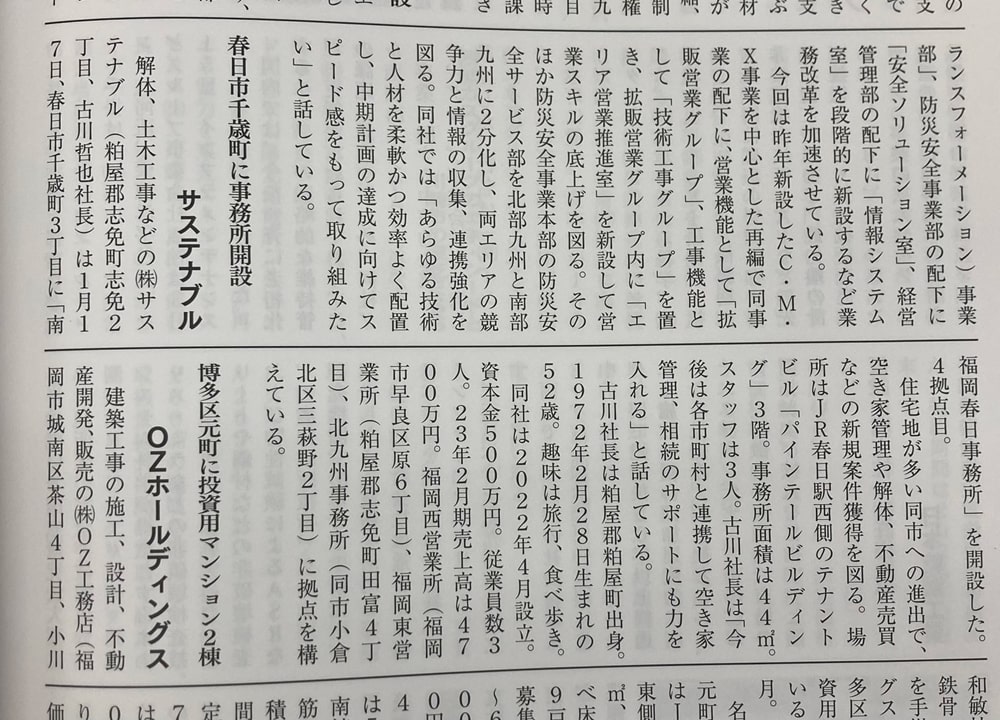 ランスフォーメーション）事業
部」、防災安全事業部の配下に
「安全ソリューション室」、経営
管理部の配下に「情報システム
室」を段階的に新設するなど業
務改革を加速させている。
今回は昨年新設したＣ・Ｍ・
Ｘ事業を中心とした再編で同事
業の配下に、営業機能として「拡
販営業グループ」、工事機能と
して「技術工事グループ」を置
き、拡販営業グループ内に「エ
リア営業推進室」を新設して営
業スキルの底上げを図る。その
ほか防災安全事業本部の防災安
全サービス部を北部九州と南部
九州に２分化し、両エリアの競
争力と情報の収集、連携強化を
図る。同社では「あらゆる技術
と人材を柔軟かつ効率よく配置
し、中期計画の達成に向けてス
ピード感をもって取り組みた
い」と話している。
春日市千歳町に事務所開設
サステナブル
解体、土木工事などの㈱サス
テナブル（粕屋郡志免町志免２
丁目、古川哲也社長）は１月１
７日、春日市千歳町３丁目に「南
福岡春日事務所」を開設した。
４拠点目。
住宅地が多い同市への進出で、
空き家管理や解体、不動産売買
などの新規案件獲得を図る。場
所はＪＲ春日駅西側のテナント
ビル「パインテールビルディン
グ」３階。事務所面積は４４㎡。
スタッフは３人。古川社長は「今
後は各市町村と連携して空き家
管理、相続のサポートにも力を
入れる」と話している。
古川社長は粕屋郡粕屋町出身。
１９７２年２月２８日生まれの
５２歳。趣味は旅行、食べ歩き。
同社は２０２２年４月設立。
資本金５００万円。従業員数３
人。２３年２月期売上高は４７
００万円。福岡西営業所（福岡
市早良区原６丁目）、福岡東営
業所（粕屋郡志免町田富４丁
目）、北九州事務所（同市小倉
北区三萩野２丁目）に拠点を構
えている。
博多区元町に投資用マンション２棟
ＯＺホールディングス
建築工事の施工、設計、不動
産開発、販売の㈱ＯＺ工務店（福
岡市城南区茶山４丁目、小川
和敏
鉄骨
を手
グス
多区
資用
いる
月。
名
元町
はＪ
東側
㎡、
べ床
９戸
募集
～６
００
０円
４
は
南
筋
積
間
定
７
０
は
り
価